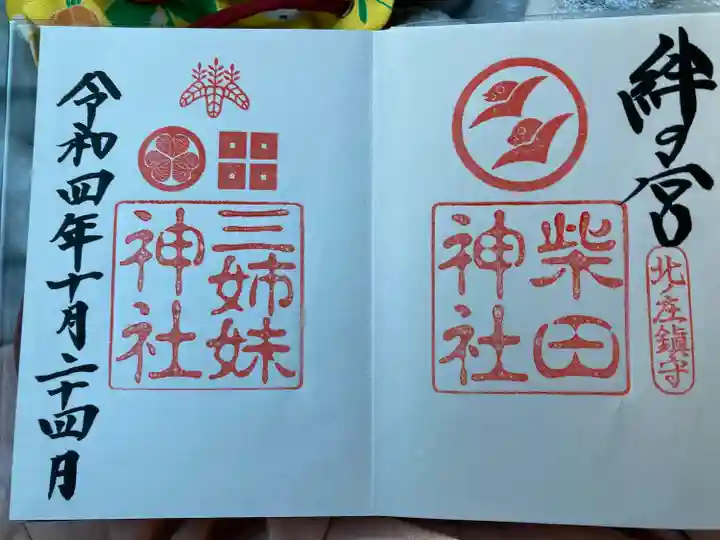 絆の宮
北ノ庄鎮守
柴田
神社
三姉妹
神社
令和四年十月二十四月